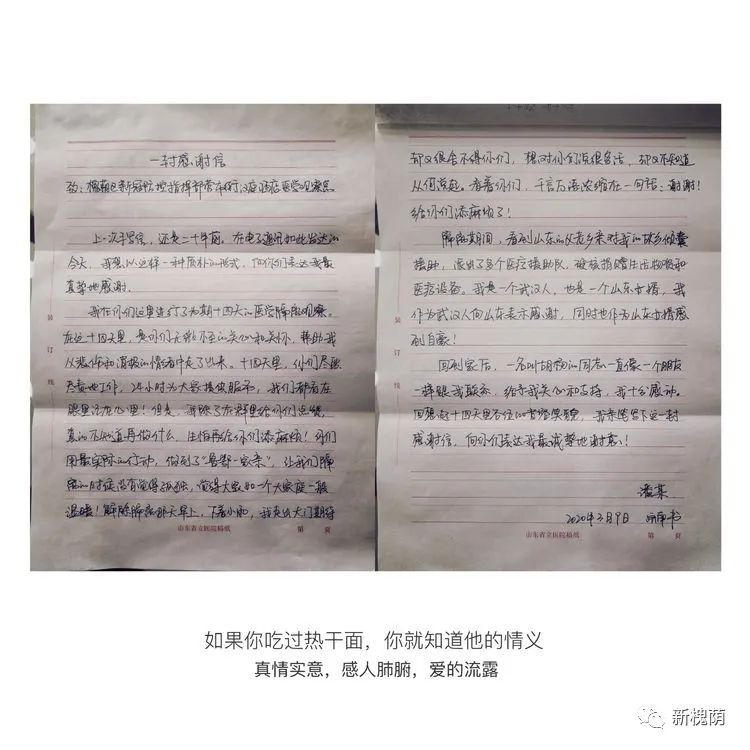 一封感谢信
致：槐荫区新冠防控指挥部常在时汉庭酒店医学观察点
上一次手写信，还是二十年前。在电子通讯如此发达的
今天，我想以这样一种质朴的形式，向你们表达我最
真挚地感谢。
我在你们这里进行了为期十四天的医学隔离观察。
在这十四天里，是你们无微不至的关心和关怀，帮助我
从悲伤和消极的情绪中走了出来。十四天里，你们尽职
尽责地工作，24小时为大家提供服务，我们都看在
眼里记在心里！但是，我除了在群里给你们点赞，
真的不知道再做什么，生怕再给你们添麻烦！你们
用最实际的行动，做到了“鲁鄂一家亲”，让我们隔
离的时候没有觉得孤独，觉得大家如一个大家庭一般
温暖！解除隔离那天早上，下着小雨，我走出大门期待
山东省立医院稿纸
第 页
装
订
线
却又很舍不得你们，想对你们说很多话，却又不知道
从何说起。看着你们，千言万语浓缩在一句话：谢谢！
给你们添麻烦了！
隔离期间，看到山东的父老乡亲对我的故乡倾囊
援助，派出了多个医疗援助队，破格捐赠生活物资和
医疗设备。我是一个武汉人，也是一个山东女婿，我
作为武汉人向山东表示感谢，同时也作为山东女婿感
到自豪！
回到家后，一名叫胡杨的同志一直像一个朋友
一样跟我联系，给予我关心和支持，我十分感动。
回想起十四天里各位的音容笑貌，我亲笔写下这一封
感谢信，向你们表达我最诚挚地谢意！
潘某
2020年3月9日
山东省立医院稿纸
第 页
装
订
线
如果你吃过热干面，你就知道他的情义
真情实意，感人肺腑，爱的流露
新槐荫